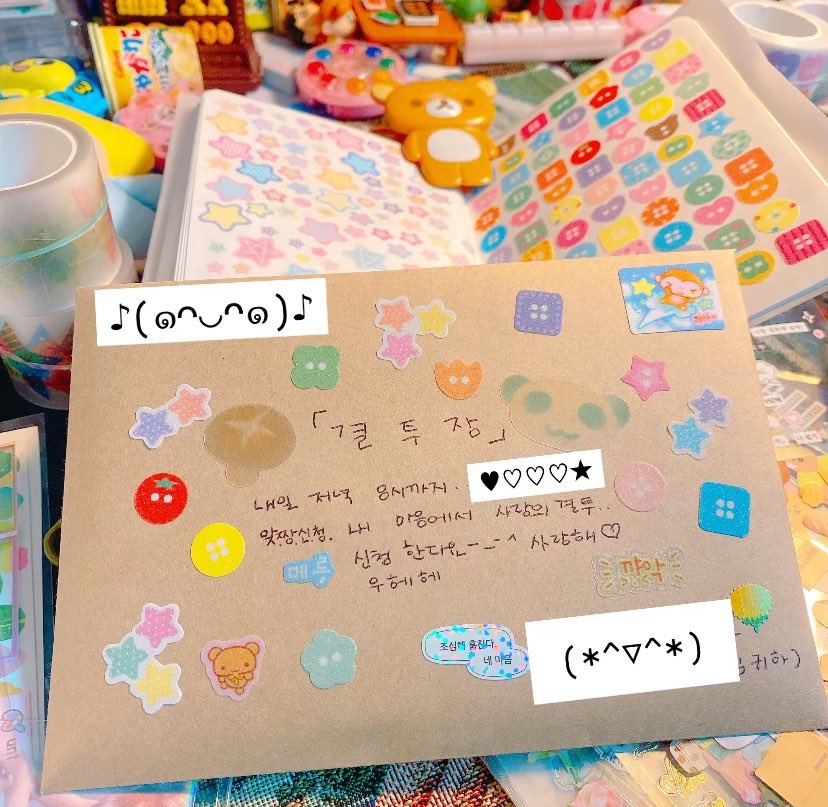 ♪(๑ᴖ◡ᴖ๑)♪
「결 투 장」
내일 저녁 8시까지..
♥♡♡♡★
맞짱신청. 내 마음에서 사랑의 결투..
신청 한다요--^ 사랑해♡
우헤헤
꺄악
조심해 훔친다
네 마음
(*^▽^*)
키하)